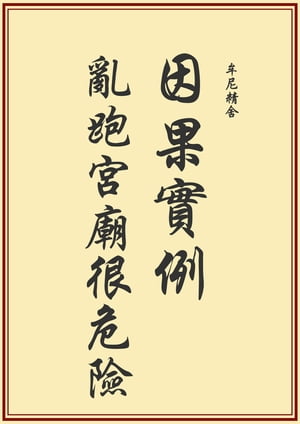 牟尼精舍
因果實例
亂跑宮廟很危險